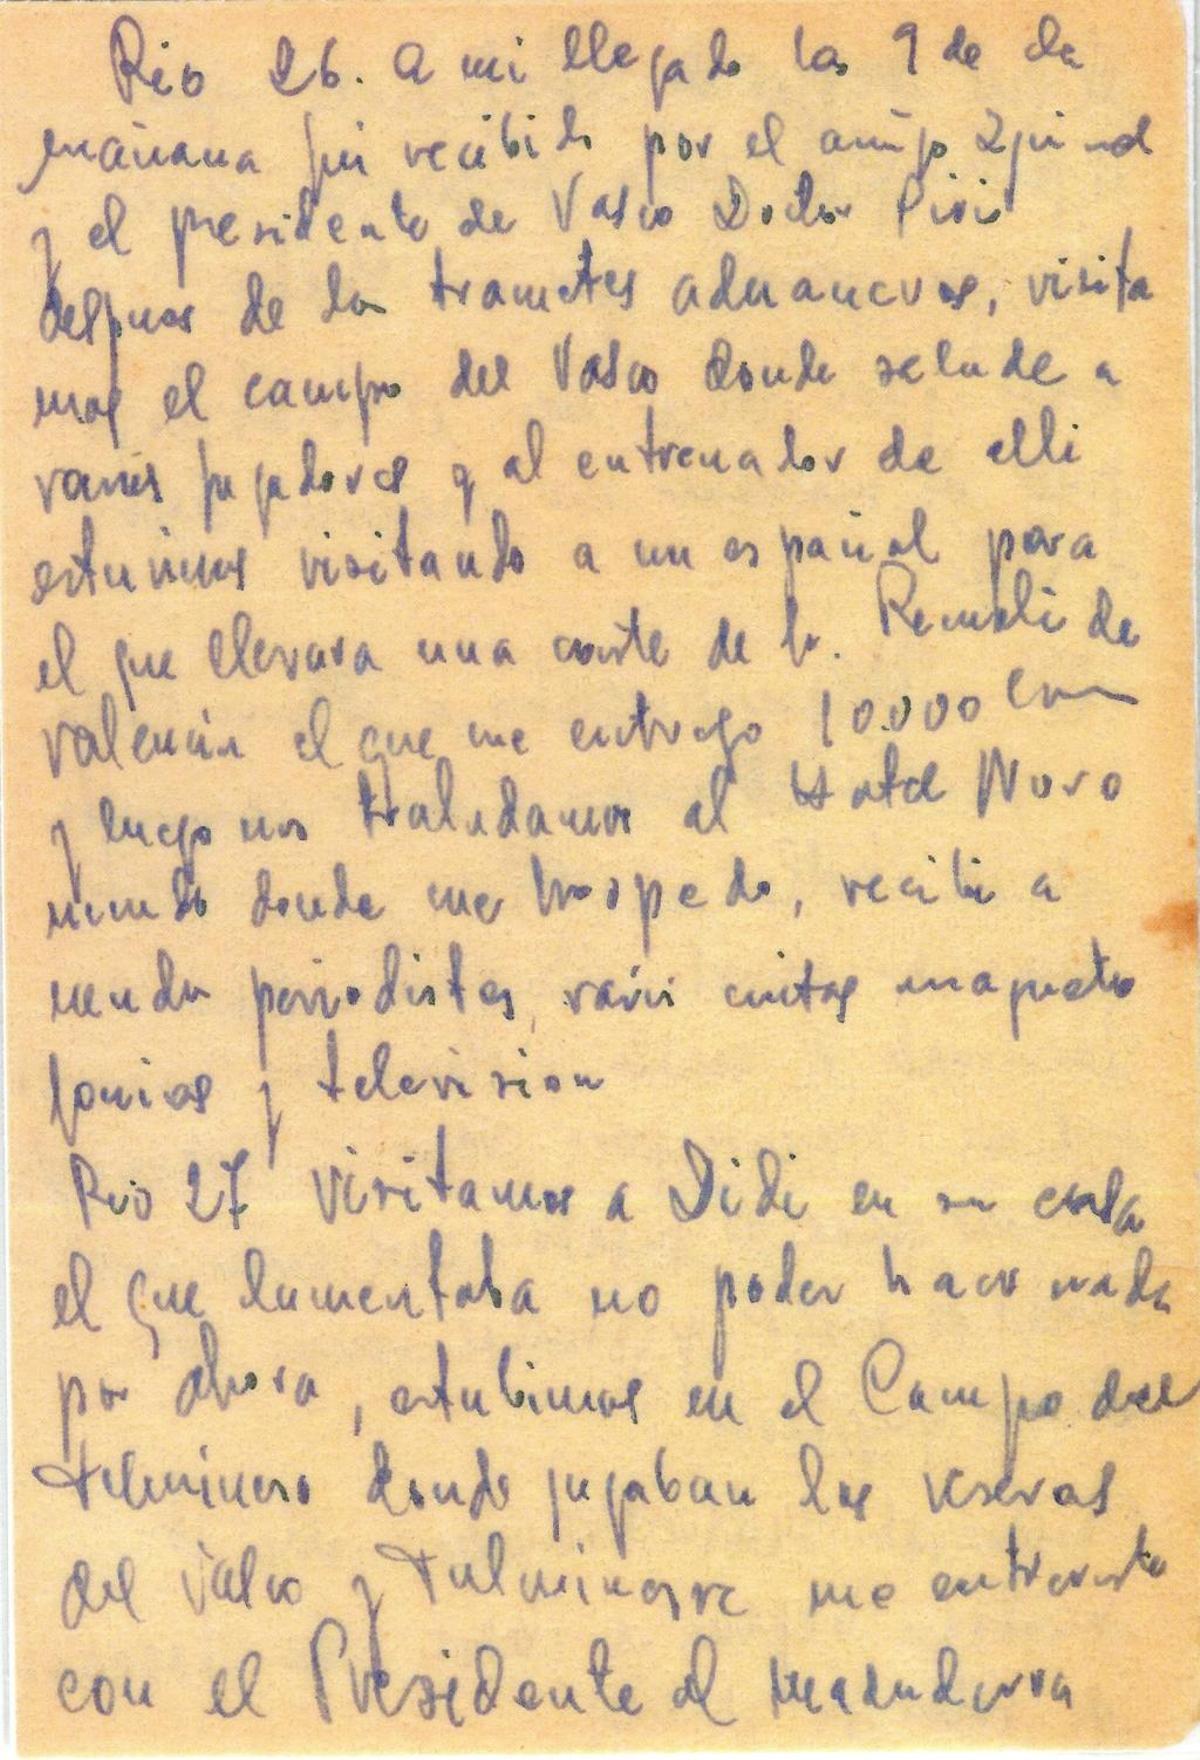 Rio 26. A mi llegada las 9 de la
mañana fui recibido por el amigo
y el presidente de Vasco Doctor Piris
despues de los trametes aduaneros, visita
mos el campo del Vasco donde salude a
varios jugadores y al entrenador de alli
estuvimos visitando a un español para
el que llevara una carte de la. Remoli de
valencia el que me entrego 10.000
y luego nos traladamos al Hotel Novo
mundo donde me hospedo, recibi a
periodistas, varis cintas magneto
fonicas y television
Rio 27 Visitamos a Didi en su casa
el que lamentaba no poder hacer nada
por ahora, estubimos en el Campo del
donde jugaban las reservas
del Vasco y me entreviste
con el Presidente del